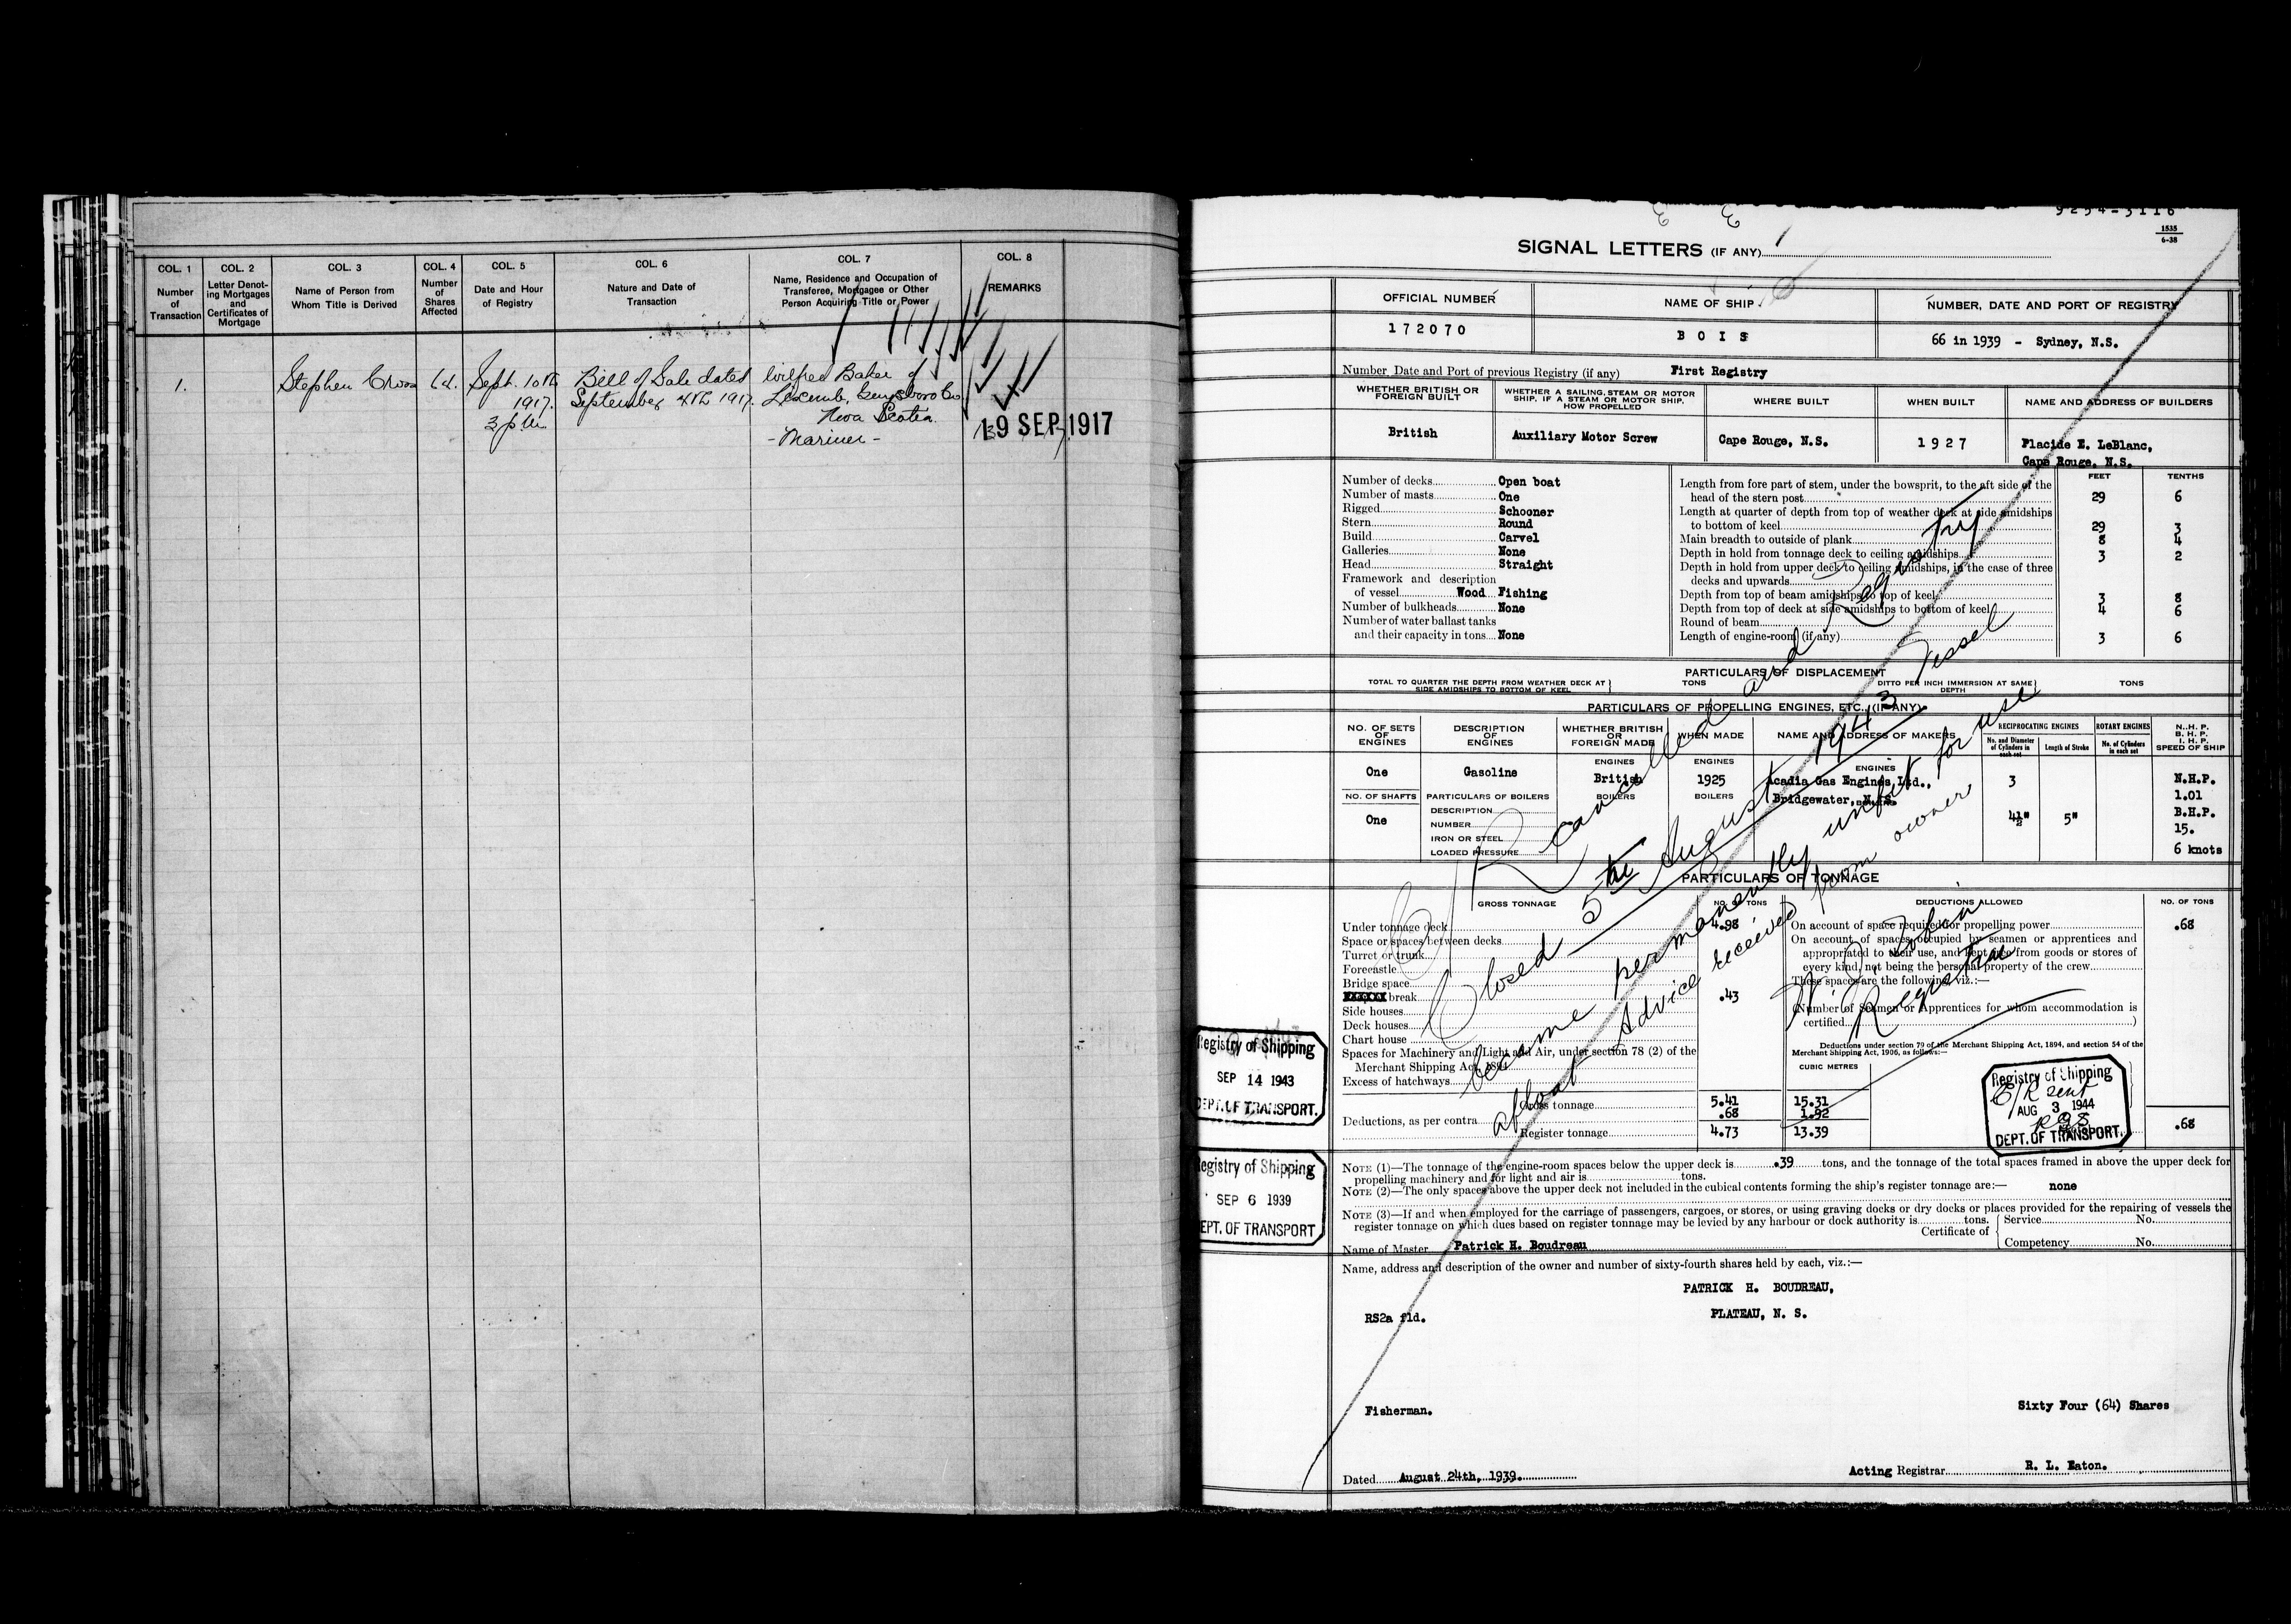 COL. 1 COL. 2 COL. 3 COL. 4 COL. 5 COL. 6 COL. 7 COL. 8
Number of Transaction
Letter Denoting Mortgages and Certificates of Mortgage
Name of Person from Whom Title is Derived
Number of Shares Affected
Date and Hour of Registry
Nature and Date of Transaction
Name, Residence and Occupation of Transferee, Mortgagee or Other Person Acquiring Title or Power
REMARKS
1. Stephen 64. Sept. 10th Bill of Sale dated Wilfred Baker of
1917. September 4th 1917. Liscomb, Co.
3 p.m. Nova Scotia
- Mariner -
19 SEP 1917
9254-3116
1535
6-38
SIGNAL LETTERS (IF ANY)
OFFICIAL NUMBER NAME OF SHIP NUMBER, DATE AND PORT OF REGISTRY
172070 BOIS 66 in 1939 - Sydney, N.S.
Number Date and Port of previous Registry (if any) First Registry
WHETHER BRITISH OR FOREIGN BUILT
WHETHER A SAILING, STEAM OR MOTOR SHIP. IF A STEAM OR MOTOR SHIP, HOW PROPELLED
WHERE BUILT WHEN BUILT NAME AND ADDRESS OF BUILDERS
British Auxiliary Motor Screw Cape Rouge, N.S. 1927 Placide E. LeBlanc,
Cape Rouge, N.S.
Number of decks Open boat
Number of masts One
Rigged Schooner
Stern Round
Build Carvel
Galleries None
Head Straight
Framework and description
of vessel Wood Fishing
Number of bulkheads None
Number of water ballast tanks
and their capacity in tons None
FEET TENTHS
Length from fore part of stem, under the bowsprit, to the aft side of the
head of the stern post 29 6
Length at quarter of depth from top of weather deck at side amidships
to bottom of keel 29 3
Main breadth to outside of plank 8 4
Depth in hold from tonnage deck to ceiling amidships 3 2
Depth in hold from upper deck to ceiling amidships, in the case of three
decks and upwards
Depth from top of beam amidships to top of keel 3 8
Depth from top of deck at side amidships to bottom of keel 4 6
Round of beam
Length of engine-room (if any) 3 6
PARTICULARS OF DISPLACEMENT
TOTAL TO QUARTER THE DEPTH FROM WEATHER DECK AT SIDE AMIDSHIPS TO BOTTOM OF KEEL TONS DITTO PER INCH IMMERSION AT SAME DEPTH TONS
PARTICULARS OF PROPELLING ENGINES, ETC., (IF ANY)
NO. OF SETS OF ENGINES
DESCRIPTION OF ENGINES
WHETHER BRITISH OR FOREIGN MADE
WHEN MADE
NAME AND ADDRESS OF MAKERS
RECIPROCATING ENGINES
No. and Diameter of Cylinders in each set
Length of Stroke
ROTARY ENGINES
No. of Cylinders in each set
N.H.P.
B.H.P.
I.H.P.
SPEED OF SHIP
ENGINES ENGINES ENGINES
One Gasoline British 1925 Acadia Gas Engines, Ltd., 3 N.H.P.
NO. OF SHAFTS PARTICULARS OF BOILERS BOILERS BOILERS Bridgewater, N.S. BOILERS 1.01
One 4½" 5" B.H.P.
DESCRIPTION
NUMBER 15.
IRON OR STEEL
LOADED PRESSURE 6 knots
PARTICULARS OF TONNAGE
GROSS TONNAGE NO. OF TONS DEDUCTIONS ALLOWED NO. OF TONS
Under tonnage deck 4.98
Space or spaces between decks
Turret or trunk
Forecastle
Bridge space
break .43
Side houses
Deck houses
Chart house
Spaces for Machinery and Light and Air, under section 78 (2) of the
Merchant Shipping Act, 1894
Excess of hatchways
Gross tonnage 5.41 15.31
Deductions, as per contra .68 1.92
Register tonnage 4.73 13.39
On account of space required for propelling power .68
On account of spaces occupied by seamen or apprentices and
appropriated to their use, and kept free from goods or stores of
every kind, not being the personal property of the crew
These spaces are the following, viz.:—
(Number of Seamen or Apprentices for whom accommodation is
certified )
Deductions under section 79 of the Merchant Shipping Act, 1894, and section 54 of the
Merchant Shipping Act, 1906, as follows:—
CUBIC METRES
.68
Cancelled and Registry
Closed 5th August 1943 Vessel
became permanently unfit for use
afloat Advice received from owner
Registrar
Registry of Shipping
SEP 14 1943
DEPT. OF TRANSPORT.
Registry of Shipping
SEP 6 1939
DEPT. OF TRANSPORT
Registry of Shipping
C/R sent
AUG 3 1944
DEPT. OF TRANSPORT.
NOTE (1)—The tonnage of the engine-room spaces below the upper deck is .39 tons, and the tonnage of the total spaces framed in above the upper deck for
propelling machinery and for light and air is tons.
NOTE (2)—The only spaces above the upper deck not included in the cubical contents forming the ship's register tonnage are:— none
NOTE (3)—If and when employed for the carriage of passengers, cargoes, or stores, or using graving docks or dry docks or places provided for the repairing of vessels the
register tonnage on which dues based on register tonnage may be levied by any harbour or dock authority is tons.
Certificate of { Service No.
Competency No.
Name of Master Patrick H. Boudreau
Name, address and description of the owner and number of sixty-fourth shares held by each, viz.:—
PATRICK H. BOUDREAU,
RS2a fld. PLATEAU, N. S.
Fisherman. Sixty Four (64) Shares
Dated August 24th, 1939. Acting Registrar R. L. Eaton.